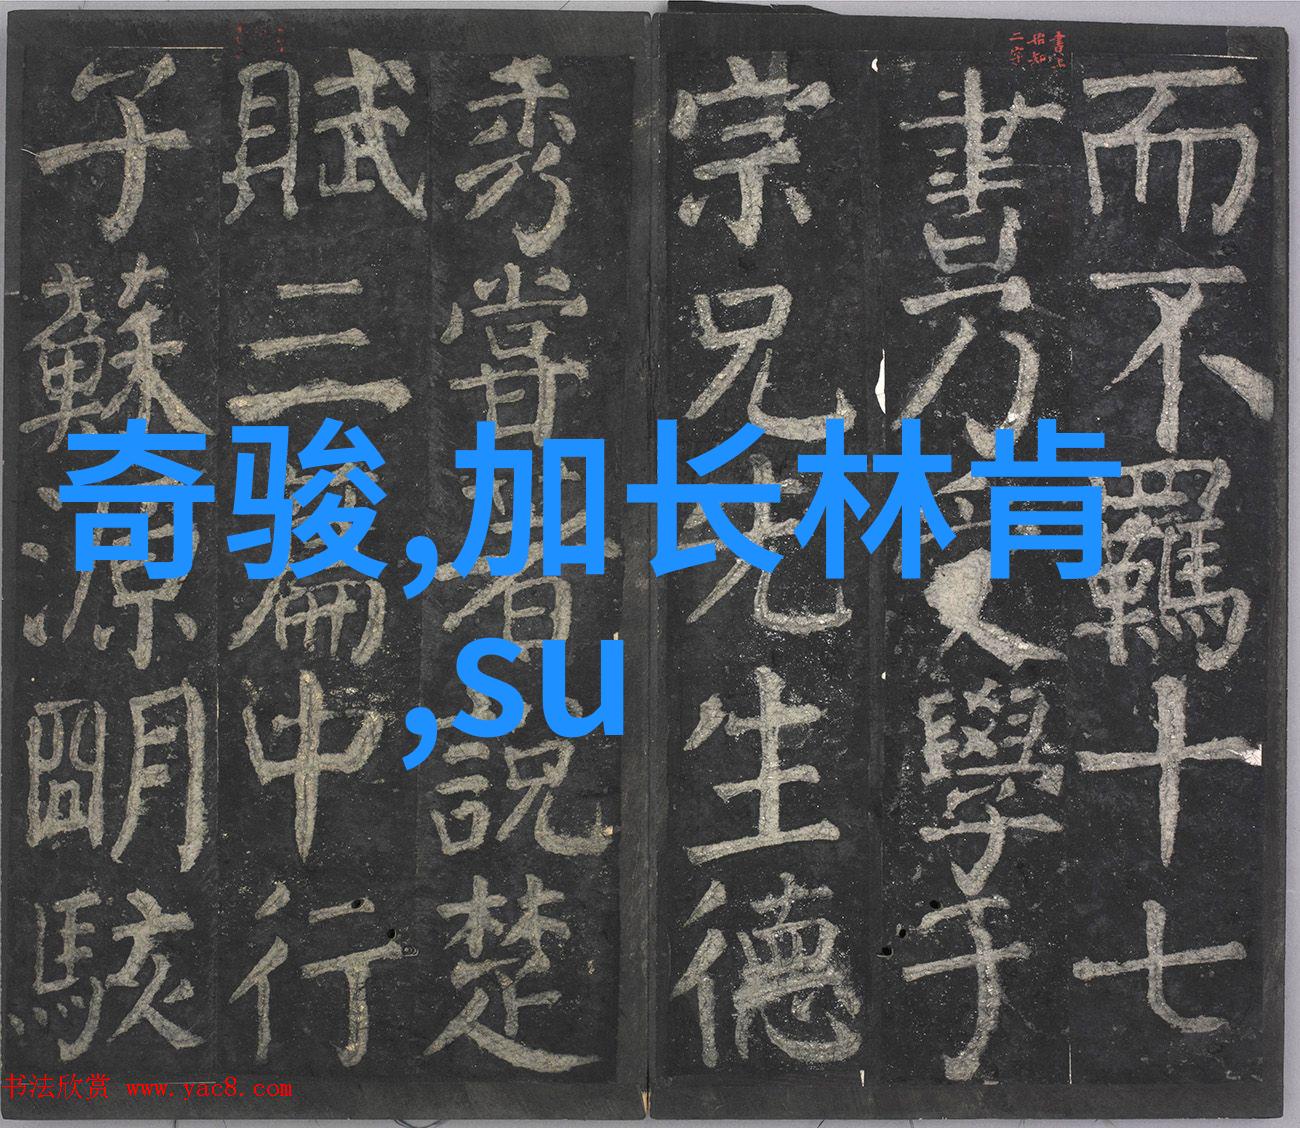 奇骏,加长林肯
,su
而不羈十七
書乃學于
宗兄先生德
秀嘗著說楚
賦三篇中行
子蘇源明駭
书法欣赏 www.yac8.com